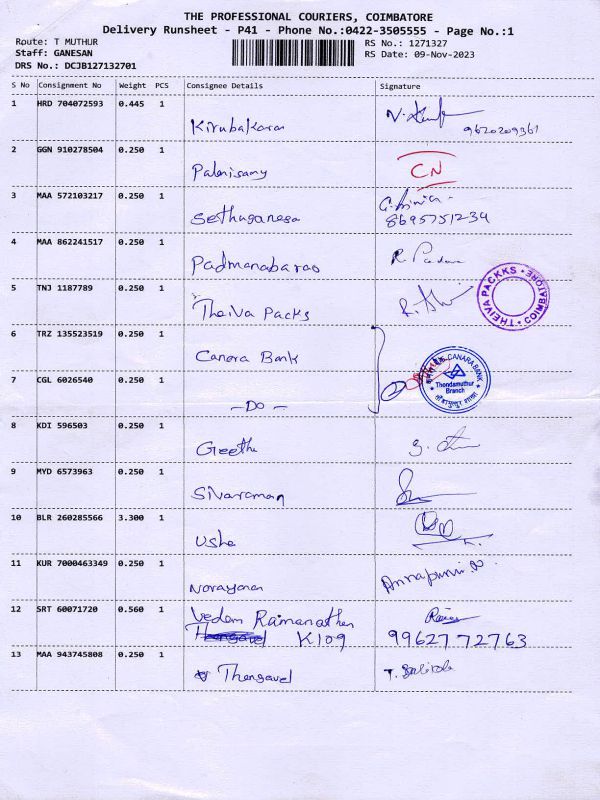 THE PROFESSIONAL COURIERS, COIMBATORE
Delivery Runsheet - P41 - Phone No.:0422-3505555 - Page No.:1
Route: T MUTHUR
RS No.: 1271327
Staff: GANESAN
RS Date: 09-Nov-2023
DRS No.: DCJB127132701
S No Consignment No Weight PCS Consignee Details Signature
1 HRD 704072593 0.445 1
Kirubakaran
9620209361
2 GGN 910278504 0.250 1
Palanisamy CN
3 MAA 572103217 0.250 1
Sethuganesa 8695751234
4 MAA 862241517 0.250 1
Padmanabarao R. Padma
5 TNJ 1187789 0.250 1
Theiva Packs
THEIVA PACKKS * COIMBATORE *
6 TRZ 135523519 0.250 1
Canara Bank
CANARA BANK
Thondamuthur
Branch
7 CGL 6026540 0.250 1
- DO -
8 KDI 596503 0.250 1
Geetha
9 MYD 6573963 0.250 1
Sivaraman
10 BLR 260285566 3.300 1
Usha
11 KUR 7000463349 0.250 1
Narayanan Annapurni
12 SRT 60071720 0.560 1
Vedam Ramanathan
K109 9962772763
13 MAA 943745808 0.250 1
Thangavel